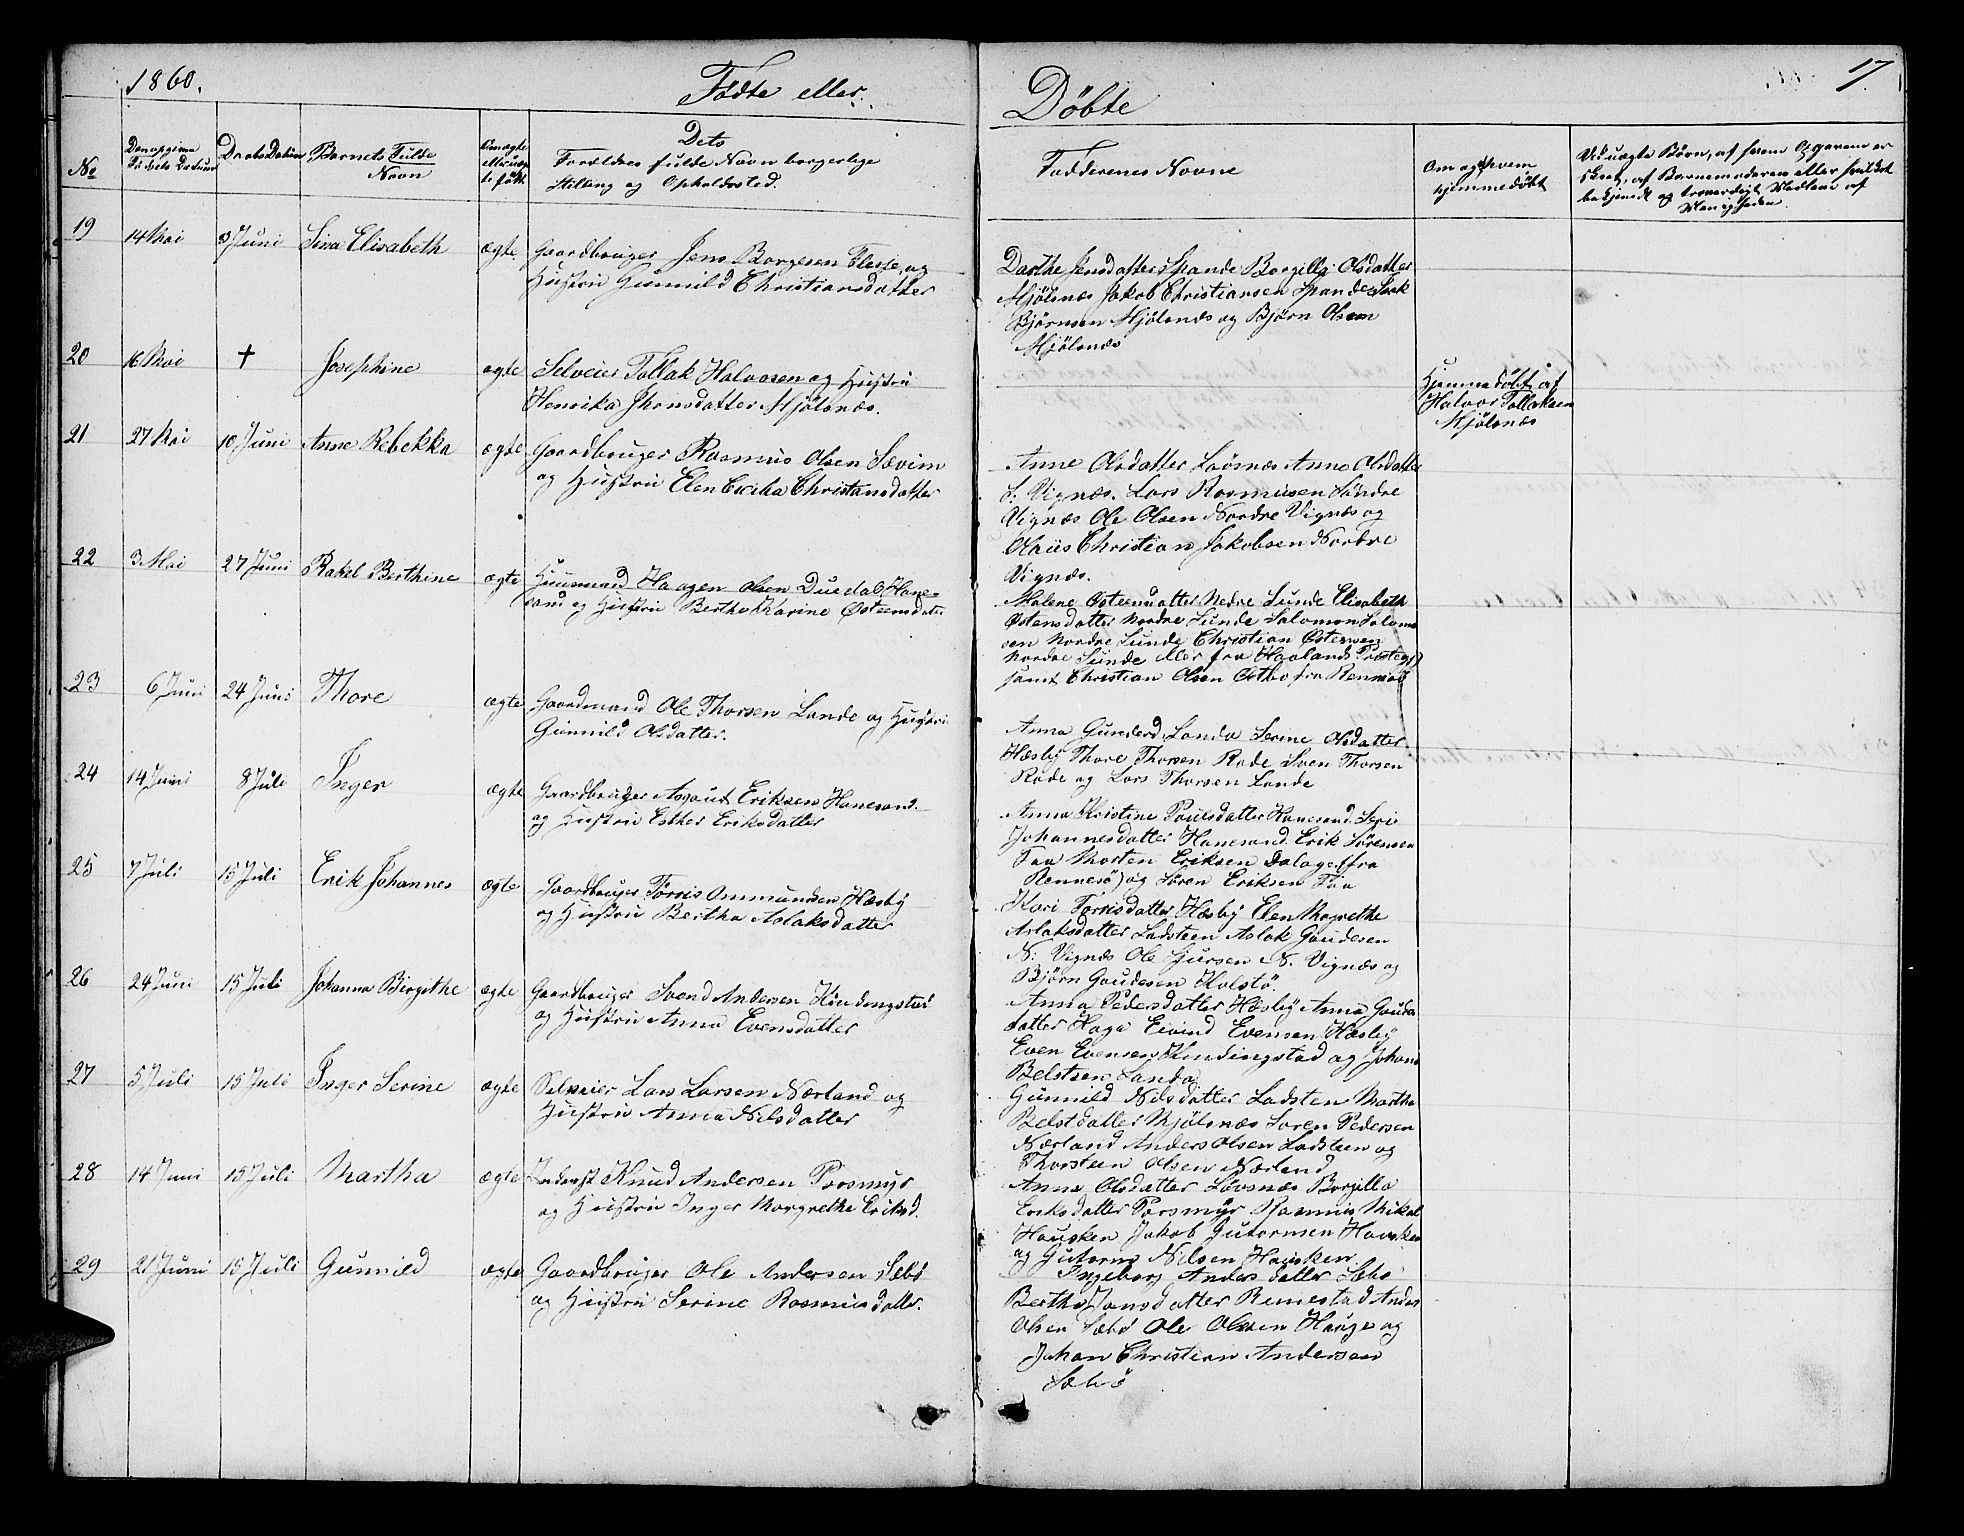 1860.
Fødte eller
Døbte
17.
No
Daabs Datum
Barnets Fulde
Navn
Dets
Forældres fulde Navn borgerlige
Stilling og Opholdssted.
Fadderenes Navne
Om og af hvem
hjemmedøbt
19
14 Mai
3 Juni
Sina Elisabeth
ægte
Gaardbruger Jens Borgesen og
Hustru Gunnild Christiansdatter
Dorthe Jensdatter Spande Borgilla Olsdatter
Mjølsnæs Jakob Christiansen Spande
Bjørnsen Mjølsnæs og Bjørn Olsen
Mjølsnæs
20
16 Mai
+
Josephine
ægte
Selveier Tollak Halvorsen og Hustru
Henrika Jhonsdatter Mjølsnæs.
Hjemmedøbt af
Halvor Tollaksen
Mjølsnæs
21
27 Mai
10 Juni
Anne Rebekka
ægte
Gaardbruger Rasmus Olsen Sævim
og Hustru Elen Christansdatter
Anne Olsdatter Løvsnæs Anne Olsdatter
S: Vignæs. Lars Rasmusen Søndre
Vignæs Ole Olsen Nordre Vignæs og
Olaüs Christian Jakobsen Nordre
Vignæs.
22
3 Mai
27 Juni
Rakel Berthine
ægte
Huusmand Haagen Olsen Duedal Hane-
sand og Hustru Bertha Karine Østeensdater
Malene Østeensdatter Nedre Sunde Elisabeth
Østensdatter Nordre Sunde Salomon Salomo
sen Nordre Sunde Christian Østensen
Nordre Sunde aller fra Haalands Præstegj)
samt Christian Olsen Østbo fra Rennesø
23
6 Juni
24 Juni
Thore
ægte
Gaardmand Ole Thorsen Lande og Hustru
Gunnild Olsdatter.
Anna Gunderd. Landa Serine Olsdatter
Hæsby Thore Thorsen Rode Sven Thorsen
Rode og Lars Thorsen Lande
24
14 Juni
8 Juli
Inger
ægte
Gaardbruger Asgaut Eriksen Hanesand.
og Hustru Esther Eriksdatter
Anna Kristine Poulsdatter Hanesand. Seri
Johannesdatter Hanesand. Erik Sørensen
Faa Morten Eriksen Dalage (fra
Rennesø) og Søren Eriksen Faa
25
7 Juli
15 Juli
Erik Johannes
ægte
Gaardbruger Tørris Ommundsen Hæsby
og Hustru Bertha Aslaksdatter
Kari Torrisdatter Hæsby Elen Magrethe
Aslaksdatter Ladsteen Aslak Goudesen
N: Vignæs Ole Sjursen N. Vignæs og
Bjørn Goudesen Holstø.
26
24 Juni
15 Juli
Johanna Birgithe
ægte
Gaardbruger Svend Andersen Kindingstad
og Hustru Anna Evensdatter
Anna Pedersdatter Hæsby Anna Goudes
datter Haga Eivind Evensen Hæsby
Even Evensen Kindingstad og Johans
Belstsen Landa
27
5 Juli
15 Juli
Inger Serine
ægte
Selveier Lars Larsen Nærland og
Hustru Anna Nilsdatter
Gunnild Nilsdatter Ladsten Martha
Belstdatter Mjølsnæs Soren Pedersen
Nærland Anders Olsen Ladsteen og
Thorsteen Olsen Nærland
28
14 Juni
15 Juli
Martha
ægte
Knud Andersen Porsmyr
og Hustru Inger Margrethe Eriksd.
Anne Olsdatter Løvsnæs Borgilla
Eriksdatter Porsmyr Rasmus Mikal
Hausken Jakob Gutormsen Hausken
og Gutorm Nilsen Hausken.
29
21 Juni
15 Juli
Gunnild
ægte
Gaardbruger Ole Andersen Sæbø
og Hustru Serine Rasmusdatter.
Ingeborg Andersdatter Sæbø
Bertha Jansdatter Rennestad Anders
Olsen Sæbø Ole Olsen Hauge og
Johan Christian Andersen
Sæbø